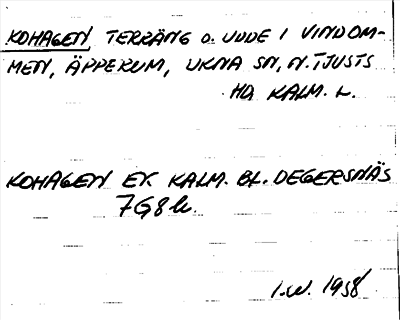 KOHAGEN, TERRÄNG O. UDDE I VINDOM-
MEN, ÄPPERUM, UKNA SN, N. TJUSTS
HD KALM. L.
KOHAGEN EK. KALM. BL. DEGERSNÄS
7G8h.
I.W. 1958